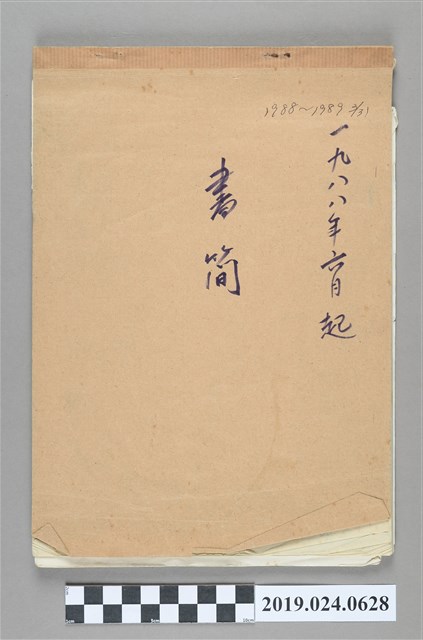 1988～1989 3/31
一九八八年六月起
書简
2019.024.0628